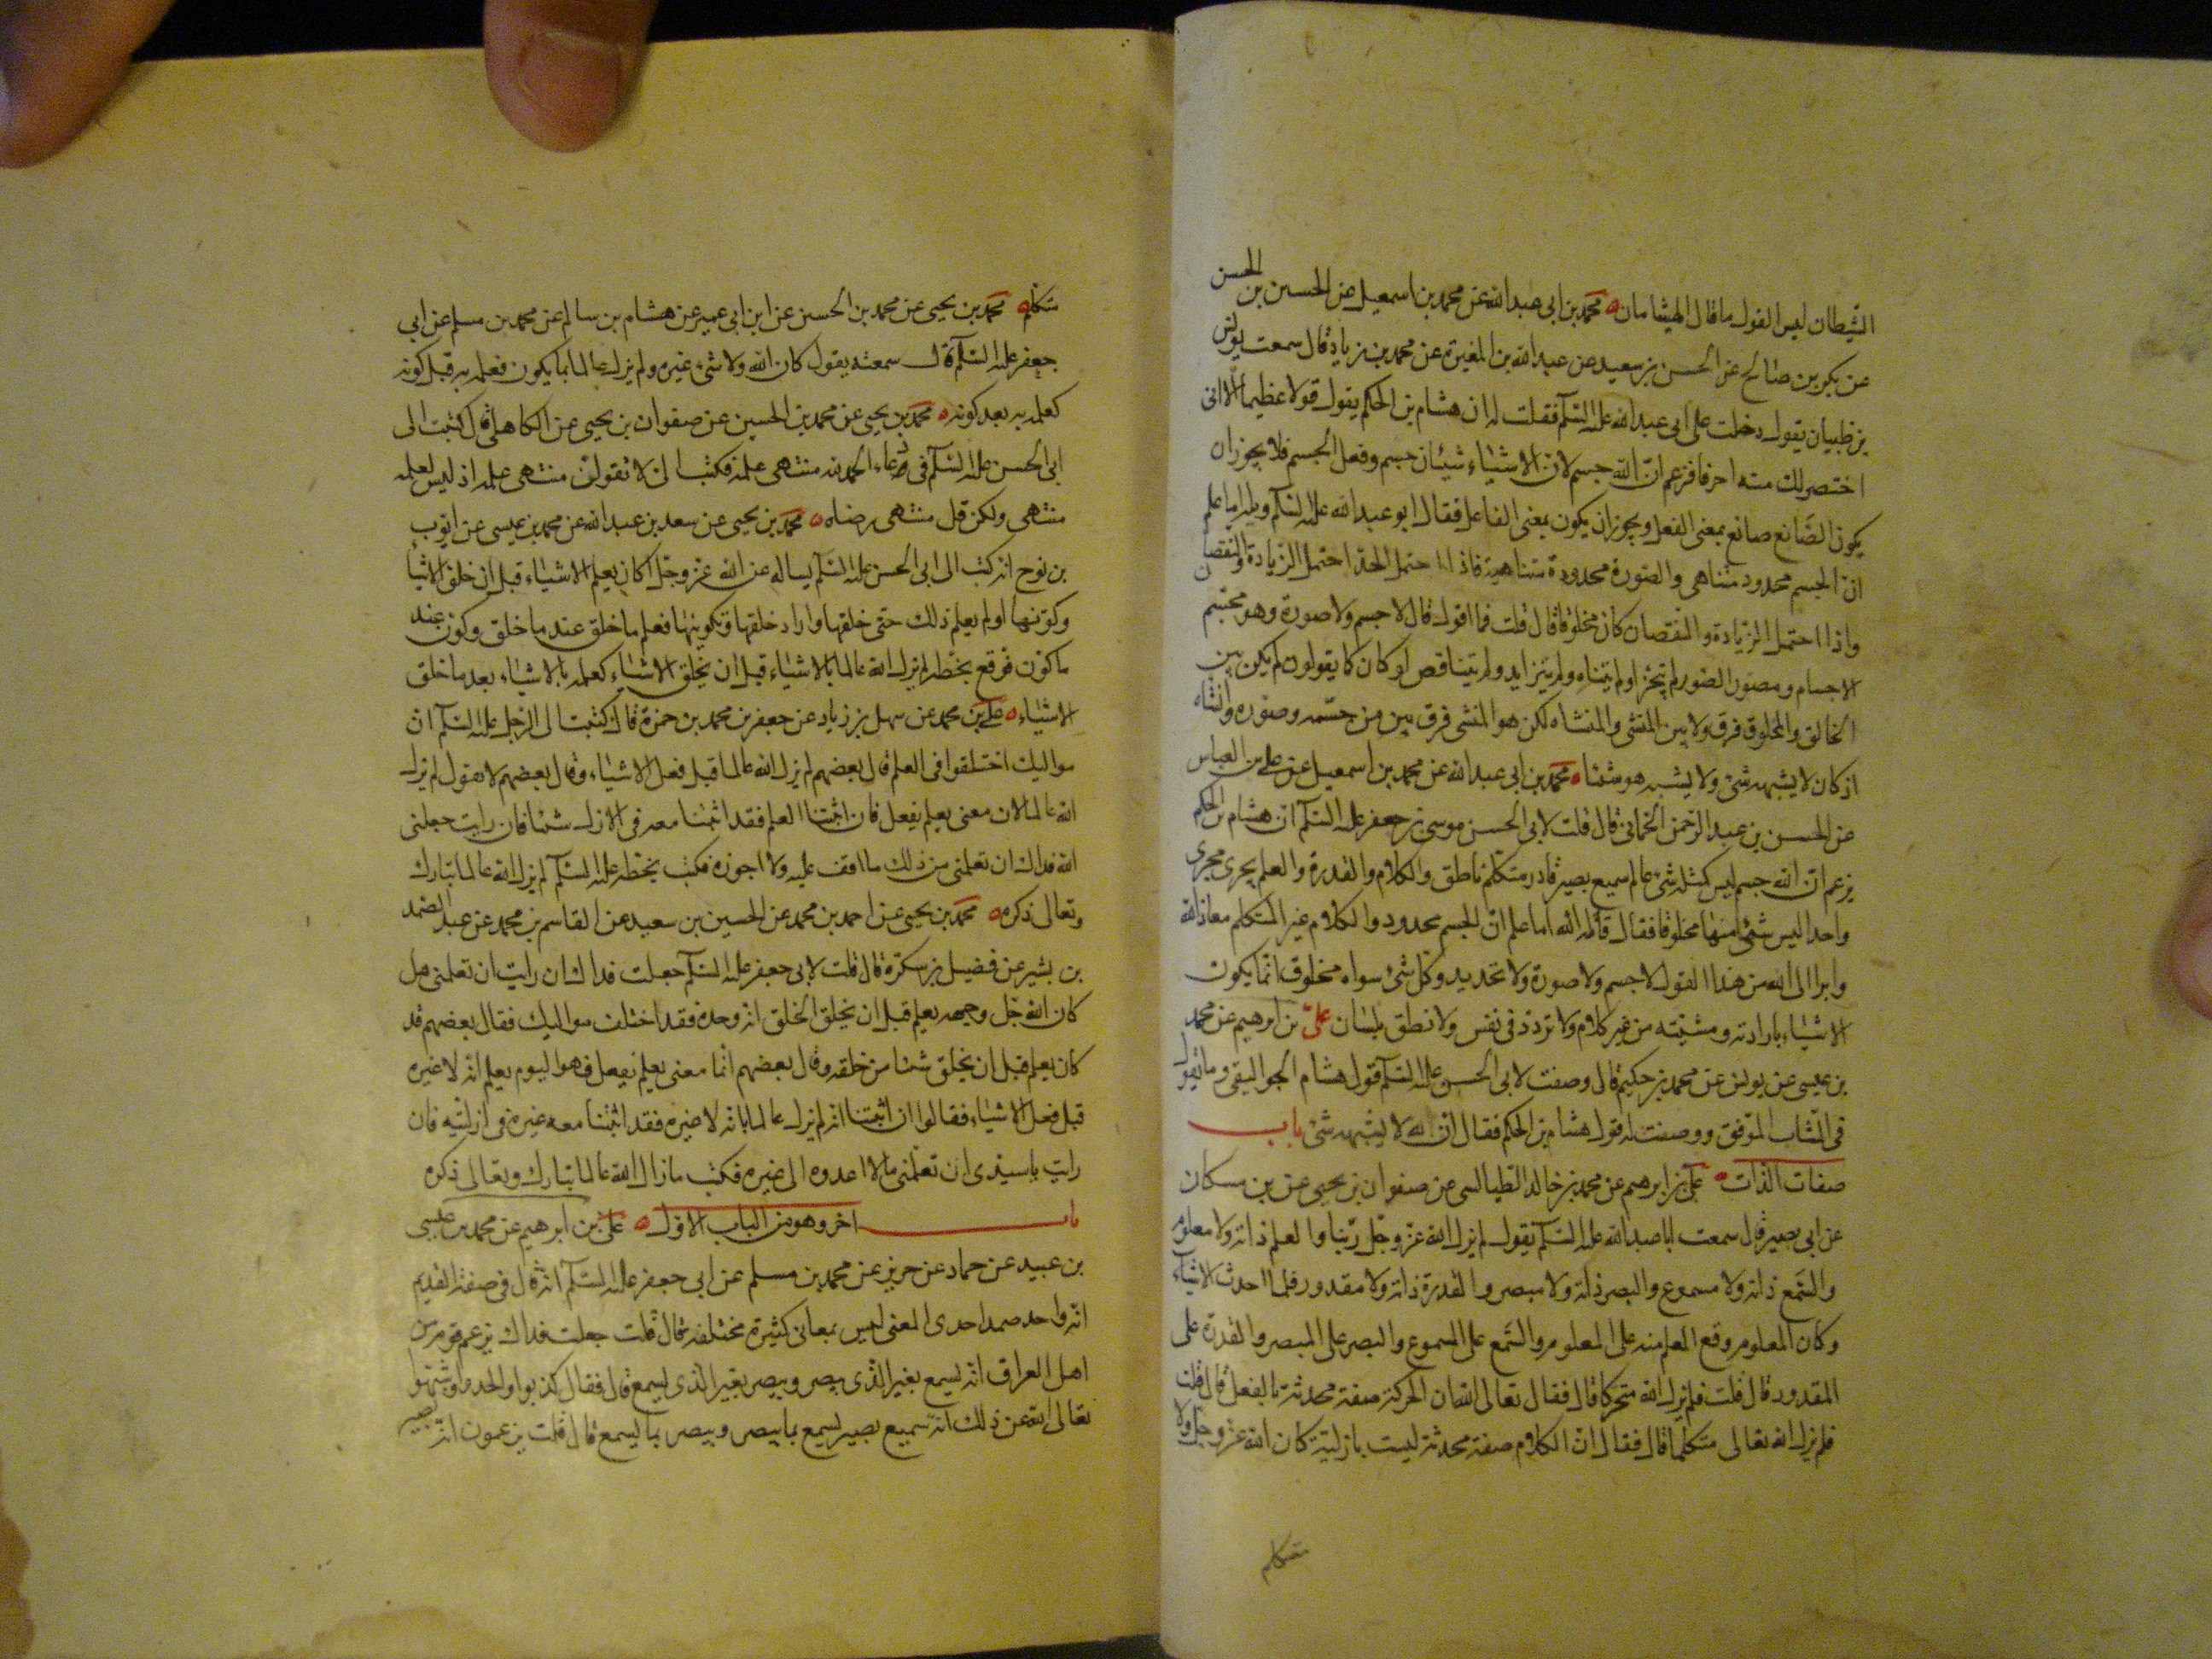 الشيطان ليس القول ما قال الهشامان محمد بن ابي عبد الله عن محمد بن اسمعيل عن الحسين بن الحسن
عن بكر بن صالح عن الحسن بن سعيد عن عبد الله بن المغيرة عن محمد بن زياد قال سمعت يونس
بن ظبيان يقول دخلت على ابي عبد الله عليه السلم فقلت له ان هشام بن الحكم يقول قولا عظيما الا اني
اختصر لك منه احرفا فزعم ان الله جسم لان الاشياء شيئان جسم وفعل الجسم فلا يجوز ان
يكون الصانع صانع بمعنى الفعل ويجوز ان يكون بمعنى الفاعل فقال ابو عبد الله عليه السلم ويله اما علم
ان الجسم محدود متناهي والصورة محدودة متناهية فاذا احتمل الحد احتمل الزيادة والنقصان
واذا احتمل الزيادة والنقصان كان مخلوقا قال قلت فما اقول قال لا جسم ولا صورة وهو مجسم
الاجسام ومصور الصور لم يتجزا ولم يتناه ولم يتزايد ولم يتناقص لو كان كما يقولون لم يكن بين
الخالق والمخلوق فرق ولا بين المنشي والمنشاه لكن هو المنشي فرق بين من جسمه وصوره وانشاه
اذ كان لا يشبهه شئ ولا يشبه هو شيئا محمد بن ابي عبد الله عن محمد بن اسمعيل عن علي بن العباس
عن الحسن بن عبد الرحمن الحماني قال قلت لابي الحسن موسى بن جعفر عليه السلم ان هشام بن الحكم
يزعم ان الله جسم ليس كمثله شئ عالم سميع بصير قادر متكلم ناطق والكلام والقدرة والعلم يجري مجرى
واحد اليس شئ منها مخلوقا فقال قاتله الله اما علم ان الجسم محدود والكلام غير المتكلم معاذ الله
وابرا الى الله من هذا القول لا جسم ولا صورة ولا تحديد وكل شئ سواه مخلوق انما يكون
الاشياء بارادته ومشيته من غير كلام ولا تردد في نفس ولا نطق بلسان علي بن ابرهيم عن محمد
بن عيسى عن يونس عن محمد بن حكيم قال وصفت لابي الحسن عليه السلم قول هشام الجواليقي وما يقول
في الشاب الموفق ووصفت له قول هشام بن الحكم فقال ان الله لا يشبهه شئ باب
صفات الذات علي بن ابرهيم عن محمد بن خالد الطيالسي عن صفوان بن يحيى عن بن مسكان
عن ابي بصير قال سمعت ابا عبد الله عليه السلم يقول لم يزل الله عز وجل ربنا والعلم ذاته ولا معلوم
والسمع ذاته ولا مسموع والبصر ذاته ولا مبصر والقدرة ذاته ولا مقدور فلما احدث الاشياء
وكان المعلوم وقع العلم منه على المعلوم والسمع على المسموع والبصر على المبصر والقدرة على
المقدور قال قلت فلم يزل الله متحركا قال فقال تعالى الله ان الحركة صفة محدثة بالفعل قال قلت
فلم يزل الله تعالى متكلما قال فقال ان الكلام صفة محدثة ليست بازلية كان الله عز وجل ولا
متكلم
متكلم محمد بن يحيى عن محمد بن الحسين عن ابن ابي عمير عن هشام بن سالم عن محمد بن مسلم عن ابي
جعفر عليه السلم قال سمعته يقول كان الله ولا شئ غيره ولم يزل عالما بما يكون فعلمه به قبل كونه
كعلمه به بعد كونه محمد بن يحيى عن محمد بن الحسين عن صفوان بن يحيى عن الكاهلي قال كتبت الى
ابي الحسن عليه السلم في دعاء الحمد لله منتهى علمه فكتب الي لا تقولن منتهى علمه اذ ليس لعلمه
منتهى ولكن قل منتهى رضاه محمد بن يحيى عن سعد بن عبد الله عن محمد بن عيسى عن ايوب
بن نوح انه كتب الى ابي الحسن عليه السلم يساله عن الله عز وجل اكان يعلم الاشياء قبل ان خلق الاشيا
وكونها او لم يعلم ذلك حتى خلقها واراد خلقها وتكوينها فعلم ما خلق عند ما خلق وكون عند
ما كون فوقع بخطه لم يزل الله عالما بالاشياء قبل ان يخلق الاشياء كعلمه بالاشياء بعد ما خلق
الاشياء علي بن محمد عن سهل بن زياد عن جعفر بن محمد بن حمزة قال كتبت الى الرجل عليه السلم ان
مواليك اختلفوا في العلم قال بعضهم لم يزل الله عالما قبل فعل الاشياء وقال بعضهم لا نقول لم يزل
الله عالما لان معنى يعلم يفعل فان اثبتنا العلم فقد اثبتنا معه في الازل شيئا فان رايت جعلني
الله فداك ان تعلمني من ذلك ما اقف عليه ولا اجوزه فكتب بخطه عليه السلم لم يزل الله عالما تبارك
وتعالى ذكره محمد بن يحيى عن احمد بن محمد عن الحسين بن سعيد عن القاسم بن محمد عن عبد الصمد
بن بشير عن فضيل بن سكرة قال قلت لابي جعفر عليه السلم جعلت فداك ان رايت ان تعلمني هل
كان الله جل وجهه يعلم قبل ان يخلق الخلق انه وحده فقد اختلف مواليك فقال بعضهم قد
كان يعلم قبل ان يخلق شيئا من خلقه وقال بعضهم انما معنى يعلم يفعل فهو اليوم يعلم انه لا غيره
قبل فعل الاشياء فقالوا ان اثبتنا انه لم يزل عالما بانه لا غيره فقد اثبتنا معه غيره في ازليته فان
رايت يا سيدي ان تعلمني ما لا اعدوه الى غيره فكتب ما زال الله عالما تبارك وتعالى ذكره
باب اخر وهو من الباب الاول علي بن ابرهيم عن محمد بن عيسى
بن عبيد عن حماد عن حريز عن محمد بن مسلم عن ابي جعفر عليه السلم انه قال في صفة القديم
انه واحد صمد احدي المعنى ليس بمعاني كثيرة مختلفة قال قلت جعلت فداك يزعم قوم من
اهل العراق انه يسمع بغير الذي يبصر ويبصر بغير الذي يسمع قال فقال كذبوا والحدوا وشبهوا
تعالى الله عن ذلك انه سميع بصير يسمع بما يبصر ويبصر بما يسمع قال قلت يزعمون انه بصير